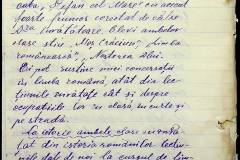 cata, "Ștefan cel Mare" cu accent
foarte frumos corectat de către
D-na învățătoare. Elevii ambelor
clase știu, "Moș Crăciun", "Limba
românească", "Andrea Albi".
Ei pot susține mici conversații
în limba română atât din lec-
țiunile învățate cât și despre
ocupațiile lor în clasă, în curte și
pe stradă.
La istorie ambele clase
din istoria românilor lecțiu-
nile dat de noi la cursul de